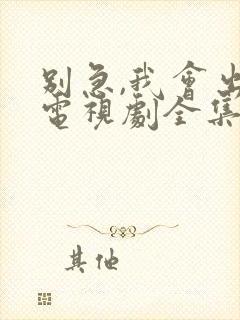 別急,我會出
電視劇全集
其他